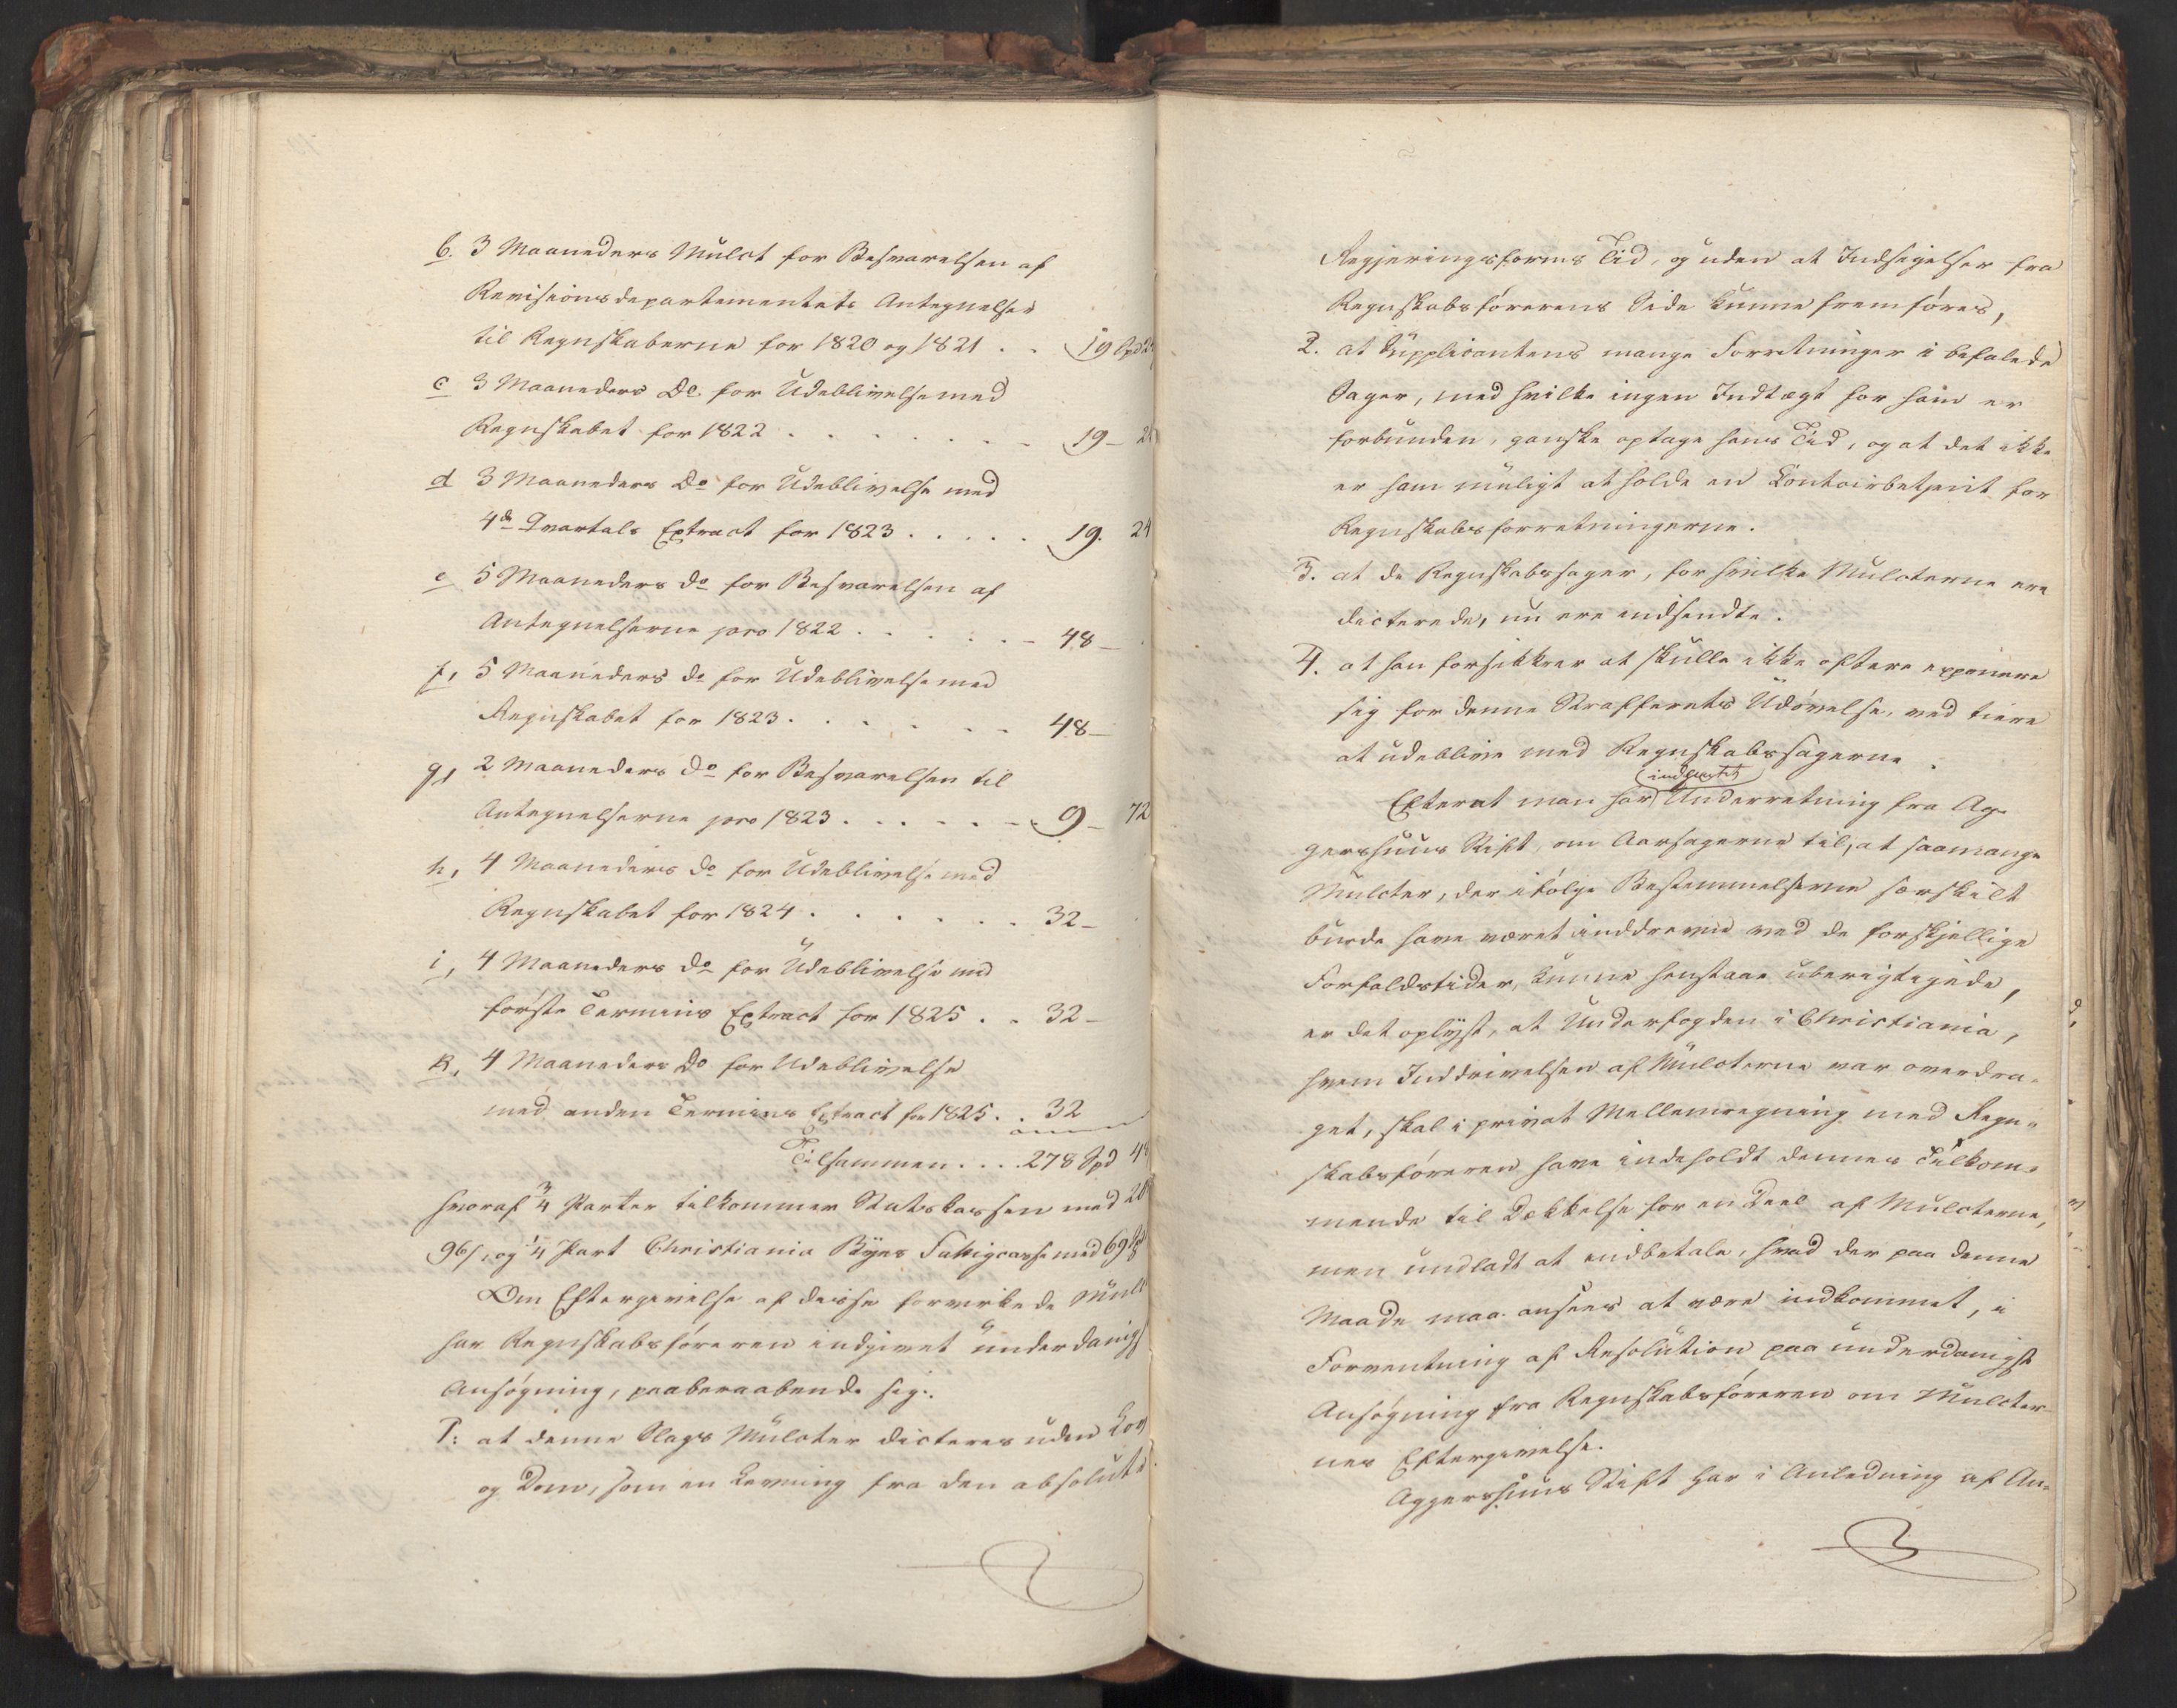 b. 3 Maaneders Mulct for Besvarelsen af
Revisionsdepartementets Antegnelser
til Regnskaberne for 1820 og 1821 . . 19 Spd 24
c 3 Maaneders Do. for Udeblivelse med
Regnskabet for 1822 . . . . . . . 19 - 24
d 3 Maaneders Do for Udeblivelse med
4de Qvartals Extract for 1823 . . . . . 19. 24
e 5 Maaneders do for Besvarelsen af
Antegnelserne pro 1822 . . . . . . 48 -
f, 5 Maaneders do for Udeblivelse med
Regnskabet for 1823 . . . . . . 48 -
g, 2 Maaneders do for Besvarelsen til
Antegnelserne pro 1823 . . . . . . 9 - 72
h, 4 Maaneders do for Udeblivelse med
Regnskabet for 1824 . . . . . . 32 -
i, 4 Maaneders do for Udeblivelse med
første Termins Extract for 1825 . . 32 -
k, 4 Maaneders Do for Udeblivelse
med anden Termins Extract for 1825 . . 32
Tilsammen . . . 278 Spd 48
hvoraf 3/4 Parter tilkommer Statskassen med
96/, og 1/4 Part Christiania Byes Fattigcasse med 69
Om Eftergivelse af disse forvirkede Mulc
har Regnskabsføreren indgivet underdanigst
Ansøgning, paaberaabende sig:
1: at denne Slags Mulcter dicteres uden Lov
og Dom, som en Levning fra den absolute
Regjeringsforms Tid, og uden at Indsigelser fra
Regnskabsførerens Side kunne fremføres,
2. at Supplicantens mange Forretninger i befalede
Sager, med hvilke ingen Indtægt for ham er
forbunden, ganske optage hans Tid, og at det ikke
er ham muligt at holde en Contoirbetjent for
Regnskabsforretningerne.
3. at de Regnskabssager, for hvilke Mulcterne ere
dicterede, nu ere indsendte.
4. at han forsikkrer at skulle ikke oftere exponere
sig for denne Strafferets Udøvelse, ved tiere
at udeblive med Regnskabssagerne.
indhentet
Efterat man har Underretning fra Ag-
gershuus Stift, om Aarsagerne til, at saamange
Mulcter, der ifølge Bestemmelserne særskilt
burde have været inddrevne ved de forskjellige
Forfaldstider, kunne henstaae uberigtigede,
er det oplyst, at Underfogden i Christiania,
hvem Inddrivelsen af Mulcterne var overdra-
get, skal i privat Mellemregning med Regn-
skabsføreren have indeholdt dennes Tilkom-
mende til Dækkelse for en Deel af Mulcterne,
men undladt at indbetale, hvad der paa denne
Maade maa ansees at være indkommet, i
Forventning af Resolution paa underdanigst
Ansøgning fra Regnskabsføreren om Mulcter-
nes Eftergivelse.
Aggershuus Stift har i Anledning af An-